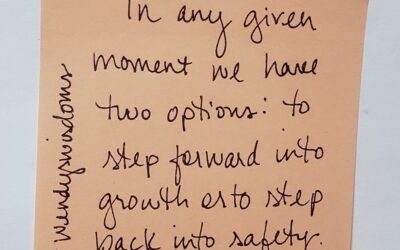 In any given
moment we have
two options: to
step forward into
growth or to step
back into safety
Wendyswisdoms